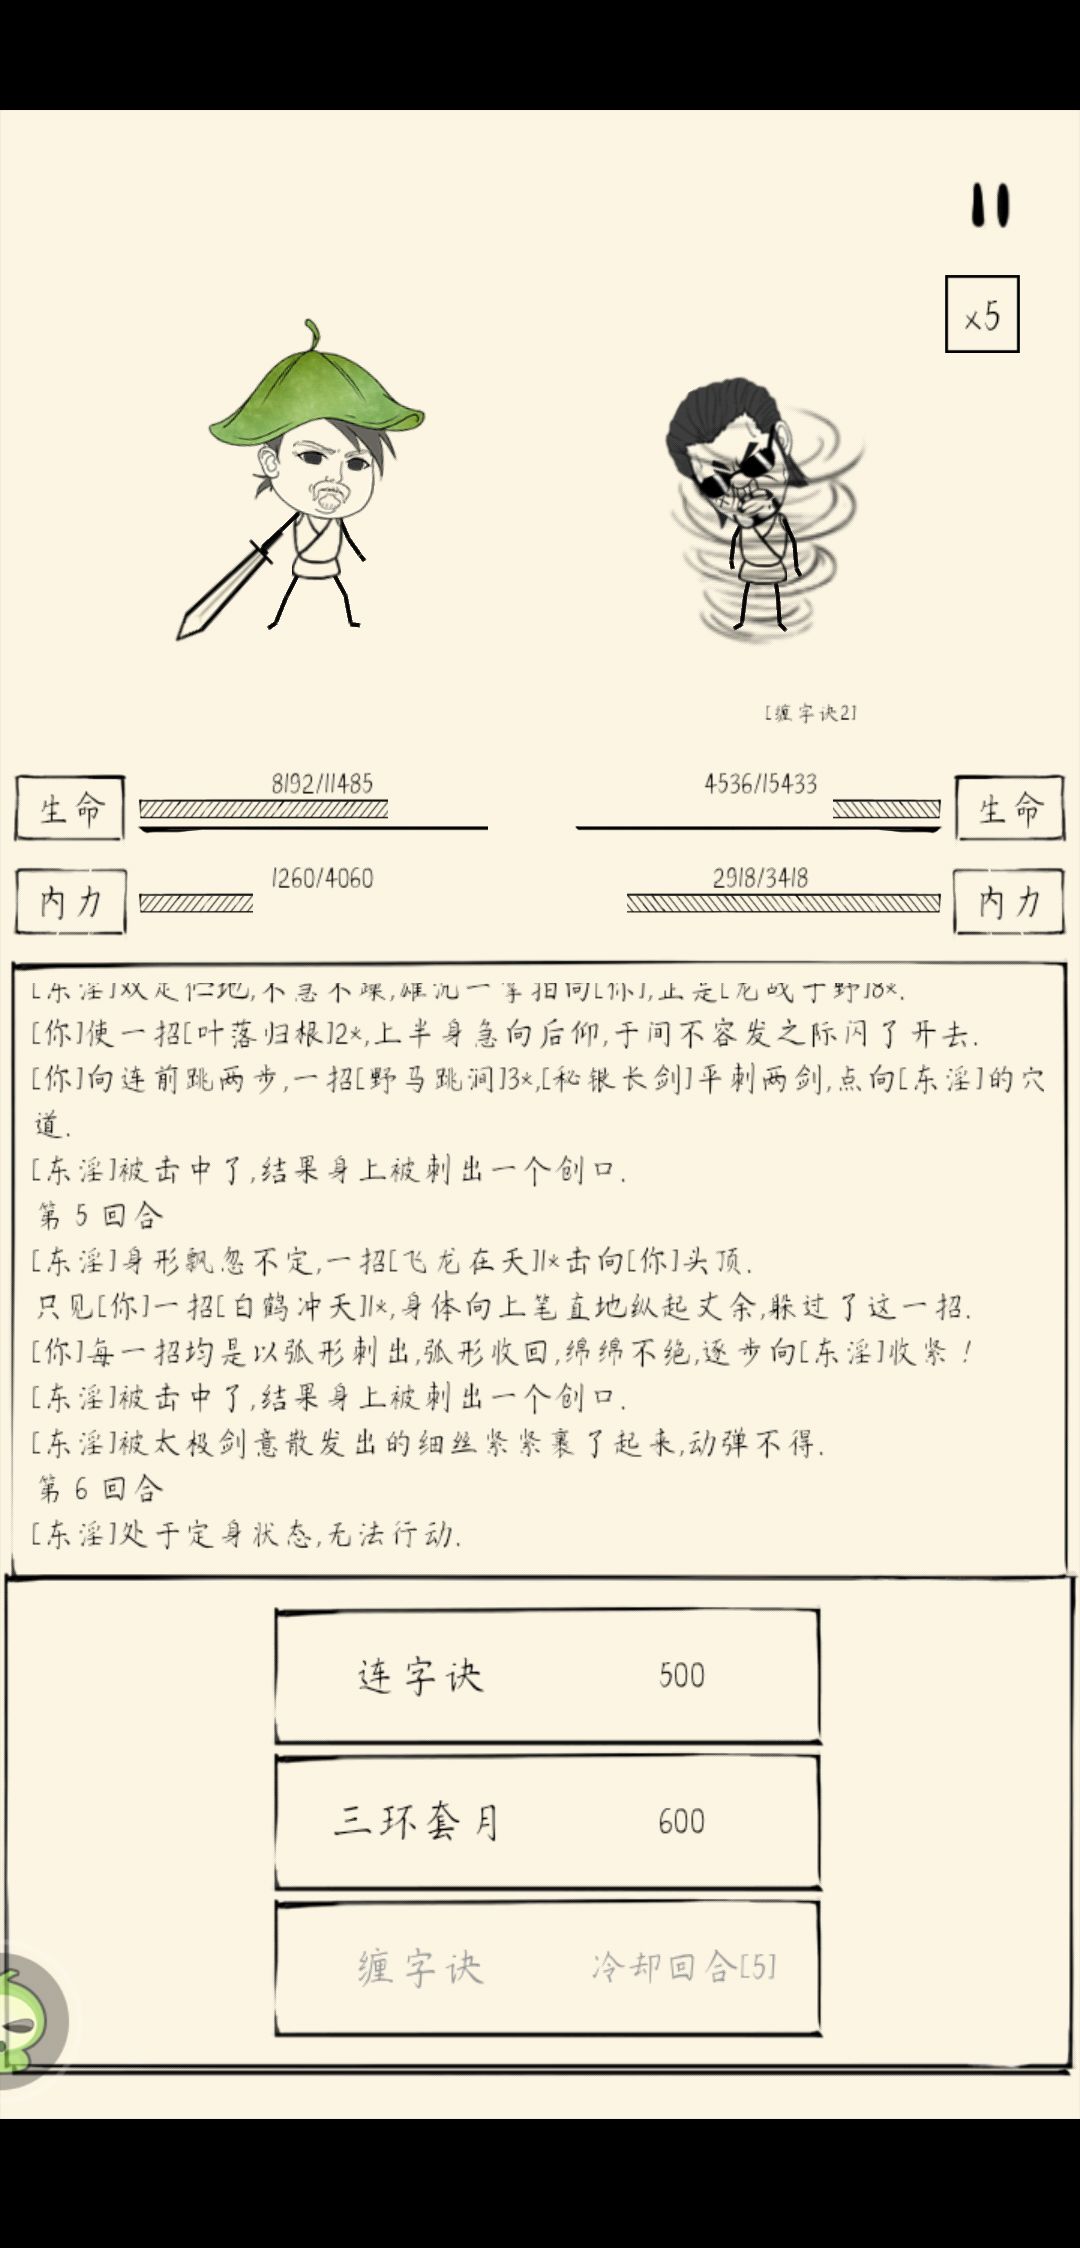 x5
[缠字诀2]
生命 8192/11485 4536/15433 生命
内力 1260/4060 2918/3418 内力
[东淫]双足伫地,不急不躁,雄沉一掌拍向[你],正是[龙战于野]8*.
[你]使一招[叶落归根]2*,上半身急向后仰,于间不容发之际闪了开去.
[你]向连前跳两步,一招[野马跳涧]3*,[秘银长剑]平刺两剑,点向[东淫]的穴
道.
[东淫]被击中了,结果身上被刺出一个创口.
第 5 回合
[东淫]身形飘忽不定,一招[飞龙在天]1*击向[你]头顶.
只见[你]一招[白鹤冲天]1*,身体向上笔直地纵起丈余,躲过了这一招.
[你]每一招均是以弧形刺出,弧形收回,绵绵不绝,逐步向[东淫]收紧!
[东淫]被击中了,结果身上被刺出一个创口.
[东淫]被太极剑意散发出的细丝紧紧裹了起来,动弹不得.
第 6 回合
[东淫]处于定身状态,无法行动.
连字诀 500
三环套月 600
缠字诀 冷却回合[5]